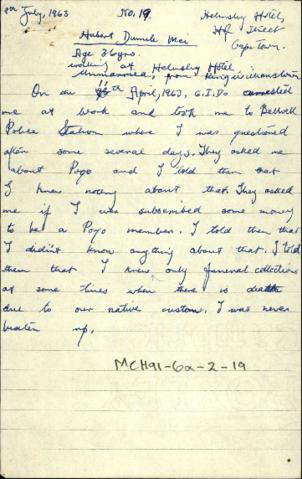 July, 1963 No. 19. Helmsley Hotel,
Hof Street
Cape Town.
Hubert Dumile Mei
Age 36yrs.
working at Helmsley Hotel.
Unmarried, from Kingwilliamstown
On our 16th April, 1963, C.I.Ds arrested
me at work and took me to Bellville
Police Station where I was questioned
after some several days. They asked me
about Pogo and I told them that
I knew nothing about that. They asked
me if I was subscribed some money
to be a Poqo member. I told them that
I didn't know anything about that. I told
them that I knew only funeral collections
at some times when there is death
due to our native customs. I was never
beaten up.
MCH91-6a-2-19